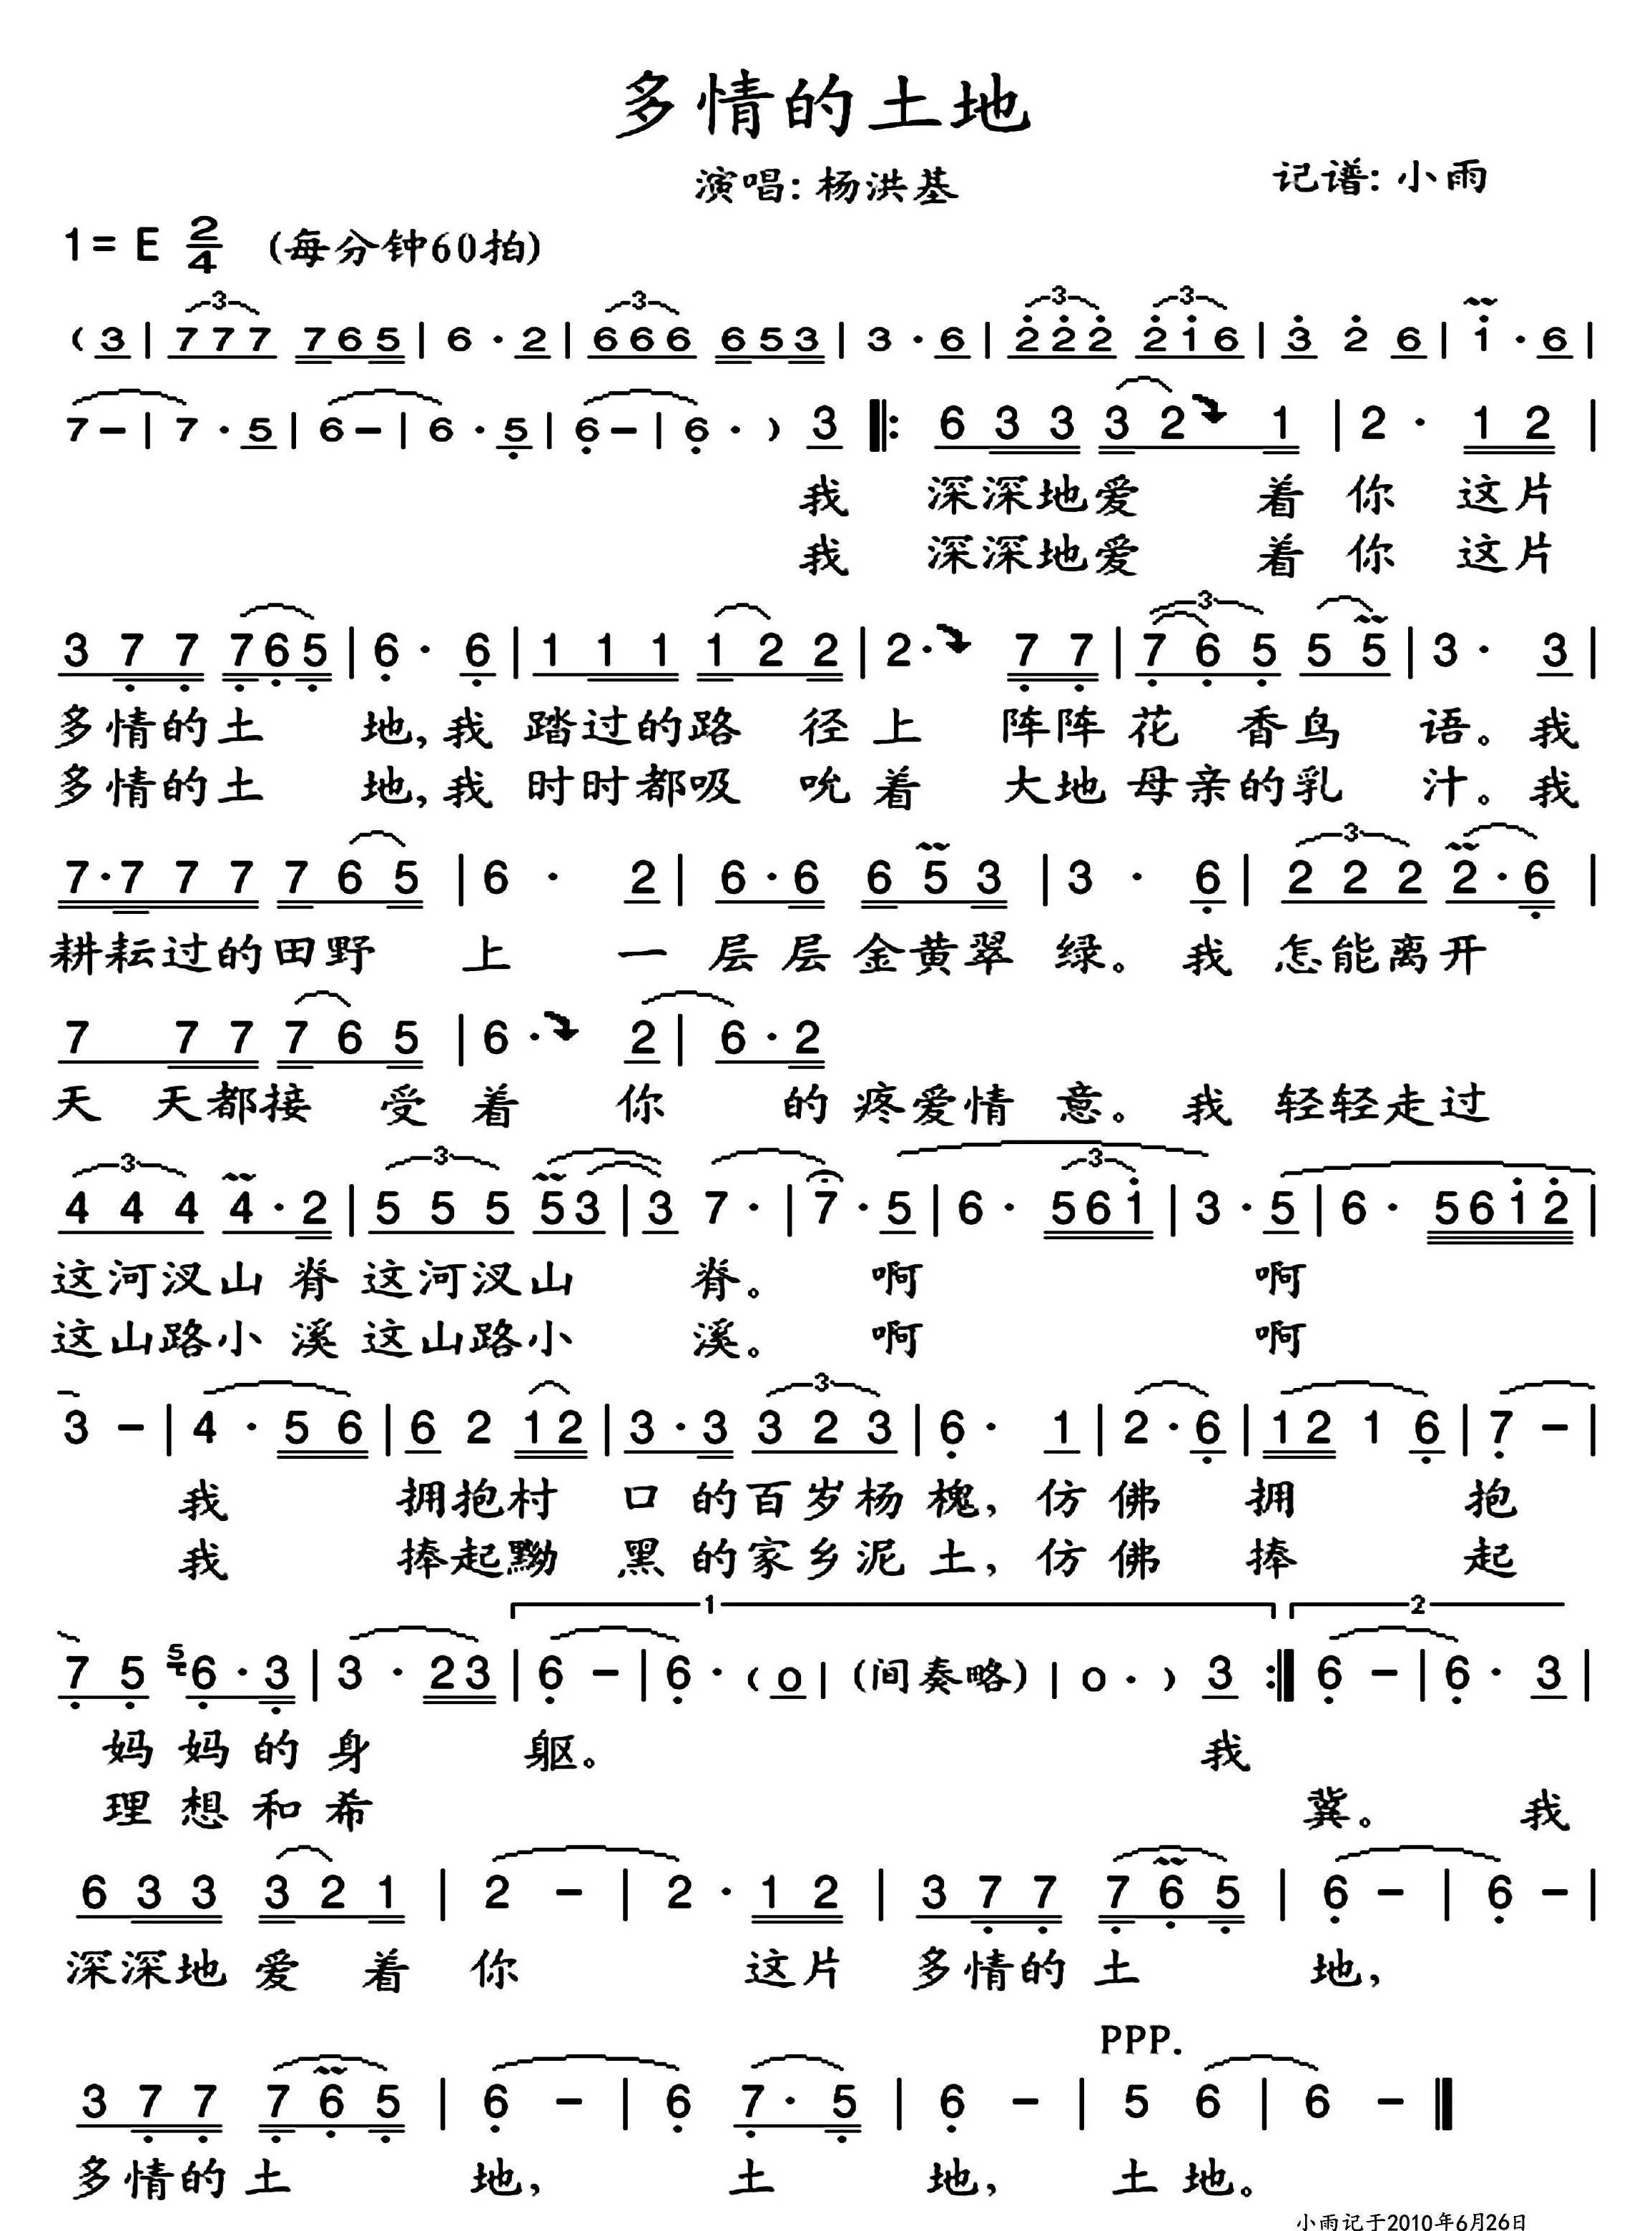 多情的土地
演唱:杨洪基 记谱:小雨
1=E 2/4 (每分钟60拍)
(3|777 765|6·2|666 653|3·6|222 216|3 2 6|1·6|
7-|7·5|6-|6·5|6-|6·) 3 |: 6 3 3 3 2 1|2· 1 2|
我 深深地爱 着 你 这片
我 深深地爱 着 你 这片
3 7 7 765|6· 6|1 1 1 1 2 2|2· 7 7|7 6 5 5 5|3· 3|
多情的土 地,我 踏过的路 径上 阵阵花 香鸟 语。我
多情的土 地,我 时时都吸 吮着 大地母亲的乳 汁。我
7·7 7 7 7 6 5|6· 2|6·6 6 5 3|3· 6|2 2 2 2·6|
耕耘过的田野 上 一 层层金黄翠 绿。我 怎能离开
7 7 7 7 6 5|6· 2|6·2
天 天都接 受着 你 的疼爱情 意。我 轻轻走过
4 4 4 4·2|5 5 5 53|3 7·|7·5|6· 561|3·5|6· 5612|
这河汊山 脊这河汊山 脊。 啊 啊
这山路小 溪这山路小 溪。 啊 啊
3 -|4·5 6|6 2 12|3·3 3 2 3|6· 1|2·6|12 1 6|7 -|
我 拥抱村 口的百岁杨槐,仿佛 拥 抱
我 捧起黝 黑的家乡泥土,仿佛 捧 起
1 2
7 5 5 6·3|3·23|6 -|6·(0|(间奏略)|0·) 3 :|6 -|6· 3|
妈妈的身 躯。 我
理想和希 冀。 我
6 3 3 3 2 1|2 -|2·1 2|3 7 7 7 6 5|6 -|6 -|
深深地爱 着 你 这片 多情的土 地,
PPP.
3 7 7 7 6 5|6 -|6 7·5|6 -|5 6|6 -|
多情的土 地, 土 地, 土地。
小雨记于2010年6月26日